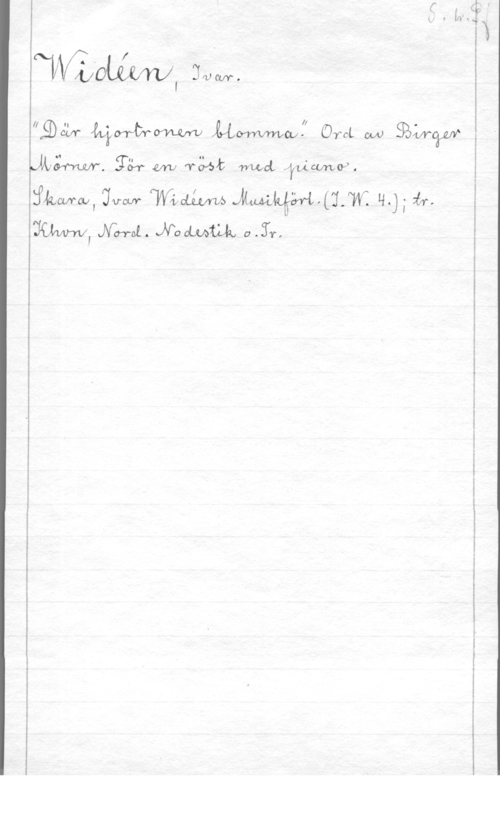 Widéen, Ivar.
"Där hjortronen blomma." Ord av Birger
Mörner. För en röst med piano.
Skara, Ivar Widéens Musikförl. (I. W. 4.); tr.
Khvn, Nord. Nodestik o. Tr.